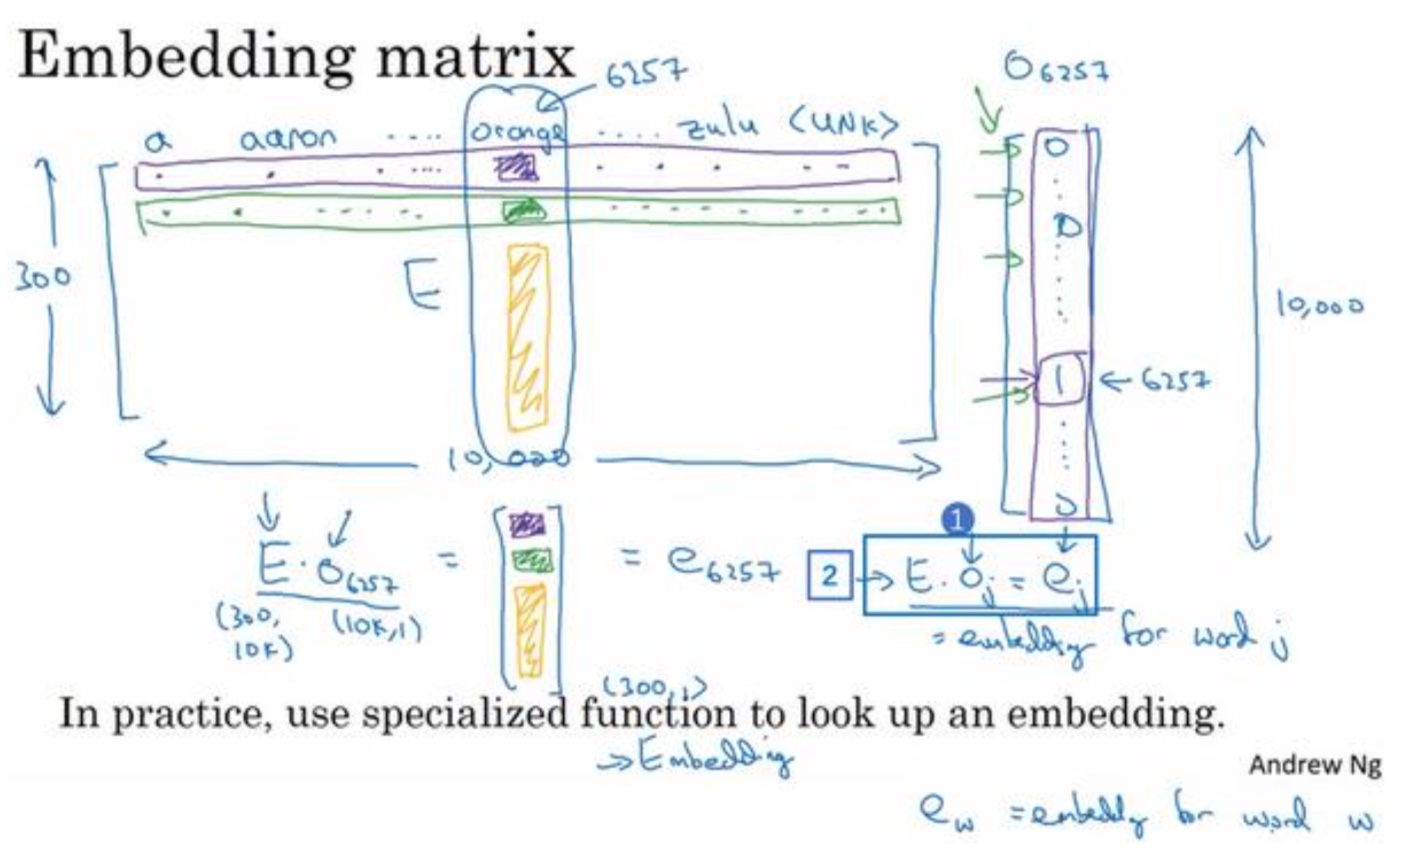 Embedding matrix
6257
O6257
a aaron ..... orange ..... zulu <UNK>
0
0
300
E
10,000
1
← 6257
10,000
0
1
E · O6257 = [ ] = e6257
2 → E · Oj = ej
(300, 10K) (10K,1)
= embedding for word j
(300,1)
In practice, use specialized function to look up an embedding.
→ Embedding
Andrew Ng
ew = embedding for word w